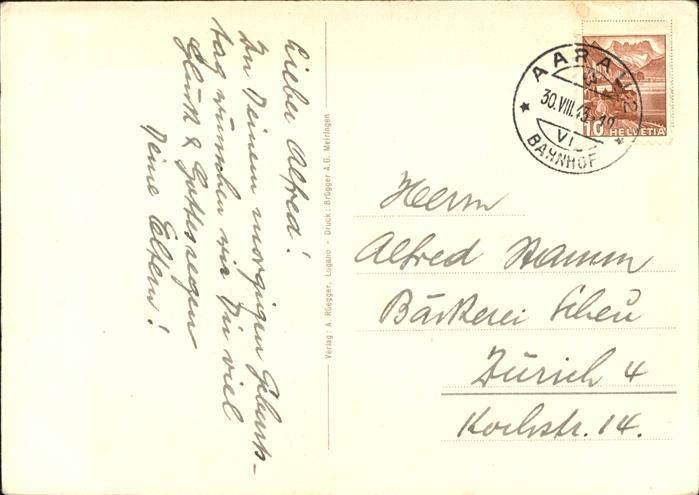 Lieber Alfred!
Zu Deinem morgigen Geburts-
tag wünschen wir Dir viel
Glück & Gottessegen
Deine Eltern!
Verlag: A. Rüegger, Lugano - Druck: Brügger A.G. Meiringen
AARAU 2
30.VIII.43-19
VI
BAHNHOF
10 HELVETIA
Herrn
Alfred Stamm
Bäckerei Scheu
Zürich 4
Kochstr. 14.